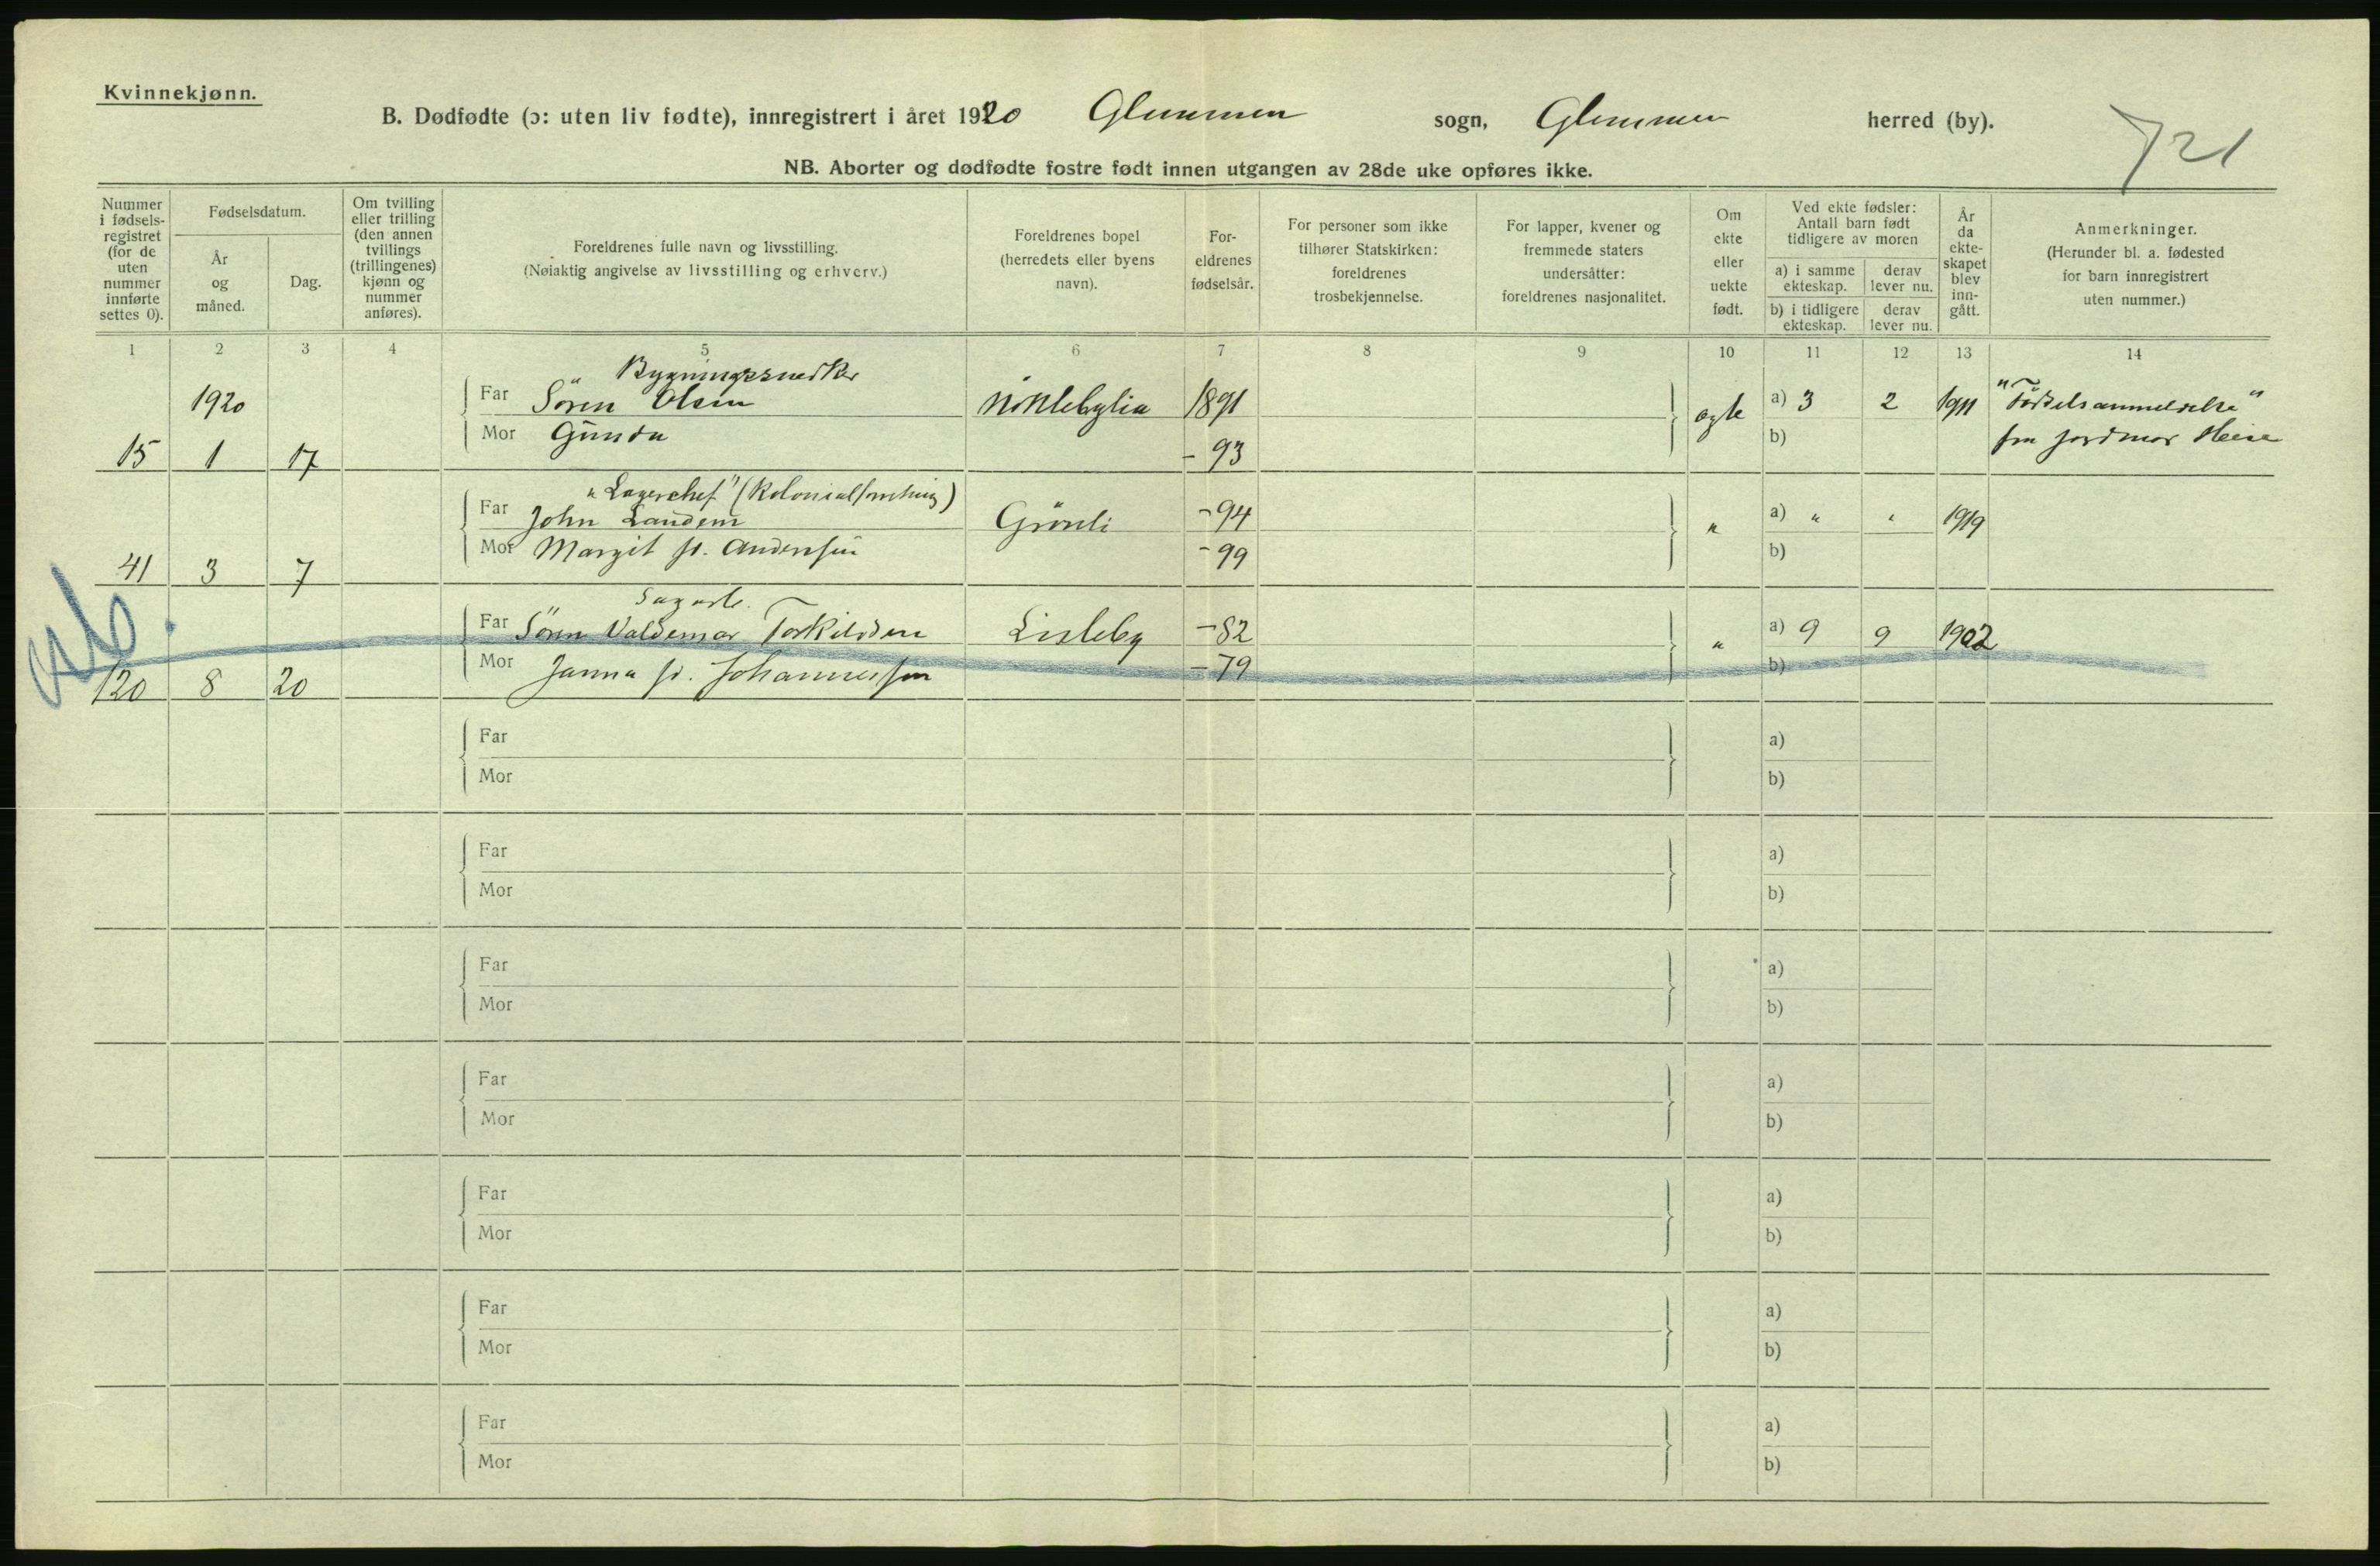 Kvinnekjønn.
B. Dødfødte (ɔ: uten liv fødte), innregistrert i året 1920 Glemmen sogn, Glemmen herred (by).
721
NB. Aborter og dødfødte fostre født innen utgangen av 28de uke opføres ikke.
Nummer i fødsels- registret (for de uten nummer innførte settes 0).
Fødselsdatum.
År og måned.
Dag.
Om tvilling eller trilling (den annen tvillings (trillingenes) kjønn og nummer anføres).
Foreldrenes fulle navn og livsstilling.
(Nøiaktig angivelse av livsstilling og erhverv.)
Foreldrenes bopel (herredets eller byens navn).
For- eldrenes fødselsår.
For personer som ikke tilhører Statskirken: foreldrenes trosbekjennelse.
For lapper, kvener og fremmede staters undersåtter: foreldrenes nasjonalitet.
Om ekte eller uekte født.
Ved ekte fødsler: Antall barn født tidligere av moren
a) i samme ekteskap.
derav lever nu.
b) i tidligere ekteskap.
derav lever nu.
År da ekte- skapet blev inn- gått.
Anmerkninger.
(Herunder bl. a. fødested for barn innregistrert uten nummer.)
1 2 3 4 5 6 7 8 9 10 11 12 13 14
Bygningssnedker
1920 Far Sören Olsen 1891 a) 3 2 1911 "Födselsanmeldelse"
Mor Gunda ægte b) fra jordmor
15 1 17 - 93
"Lagerchef"
Far John Landem Grönli - 94 " a) " " 1919
Mor Margit f. Andersen - 99 b)
41 3 7
Sagarb.
Far Sören Valdemar Torkildsen Lisleby - 82 " a) 9 9 1902
Mor Janna f. Johannessen - 79 b)
120 8 20
Far a)
Mor b)
Far a)
Mor b)
Far a)
Mor b)
Far a)
Mor b)
Far a)
Mor b)
Far a)
Mor b)
Far a)
Mor b)